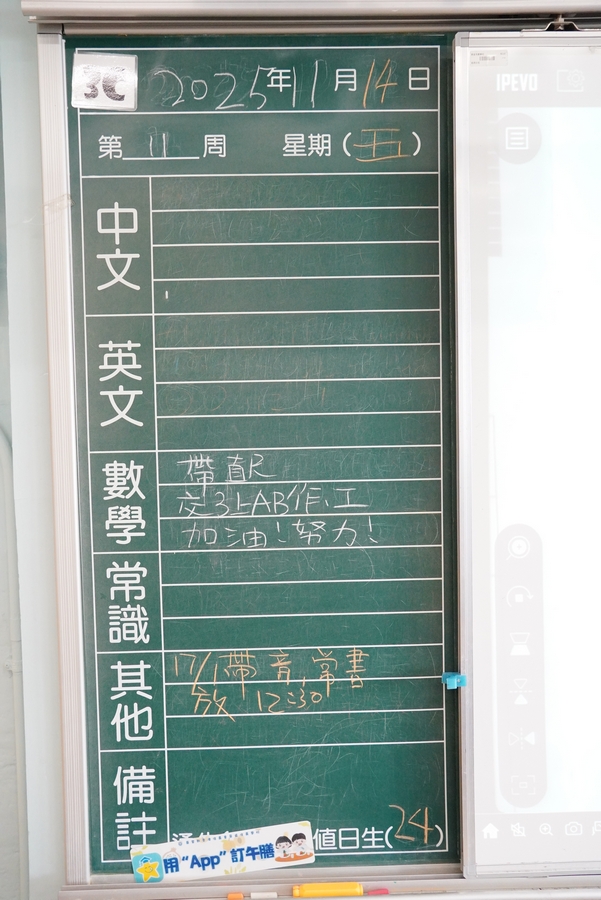 3C 2025年11月14日
第 11 周 星期(五)
中文
英文
數學
帶直尺
交3上AB作、工
加油!努力!
常識
其他
17/1帶音,常書
放 12:30
備註
值日生(24)
用“App”訂午膳
IPEVO